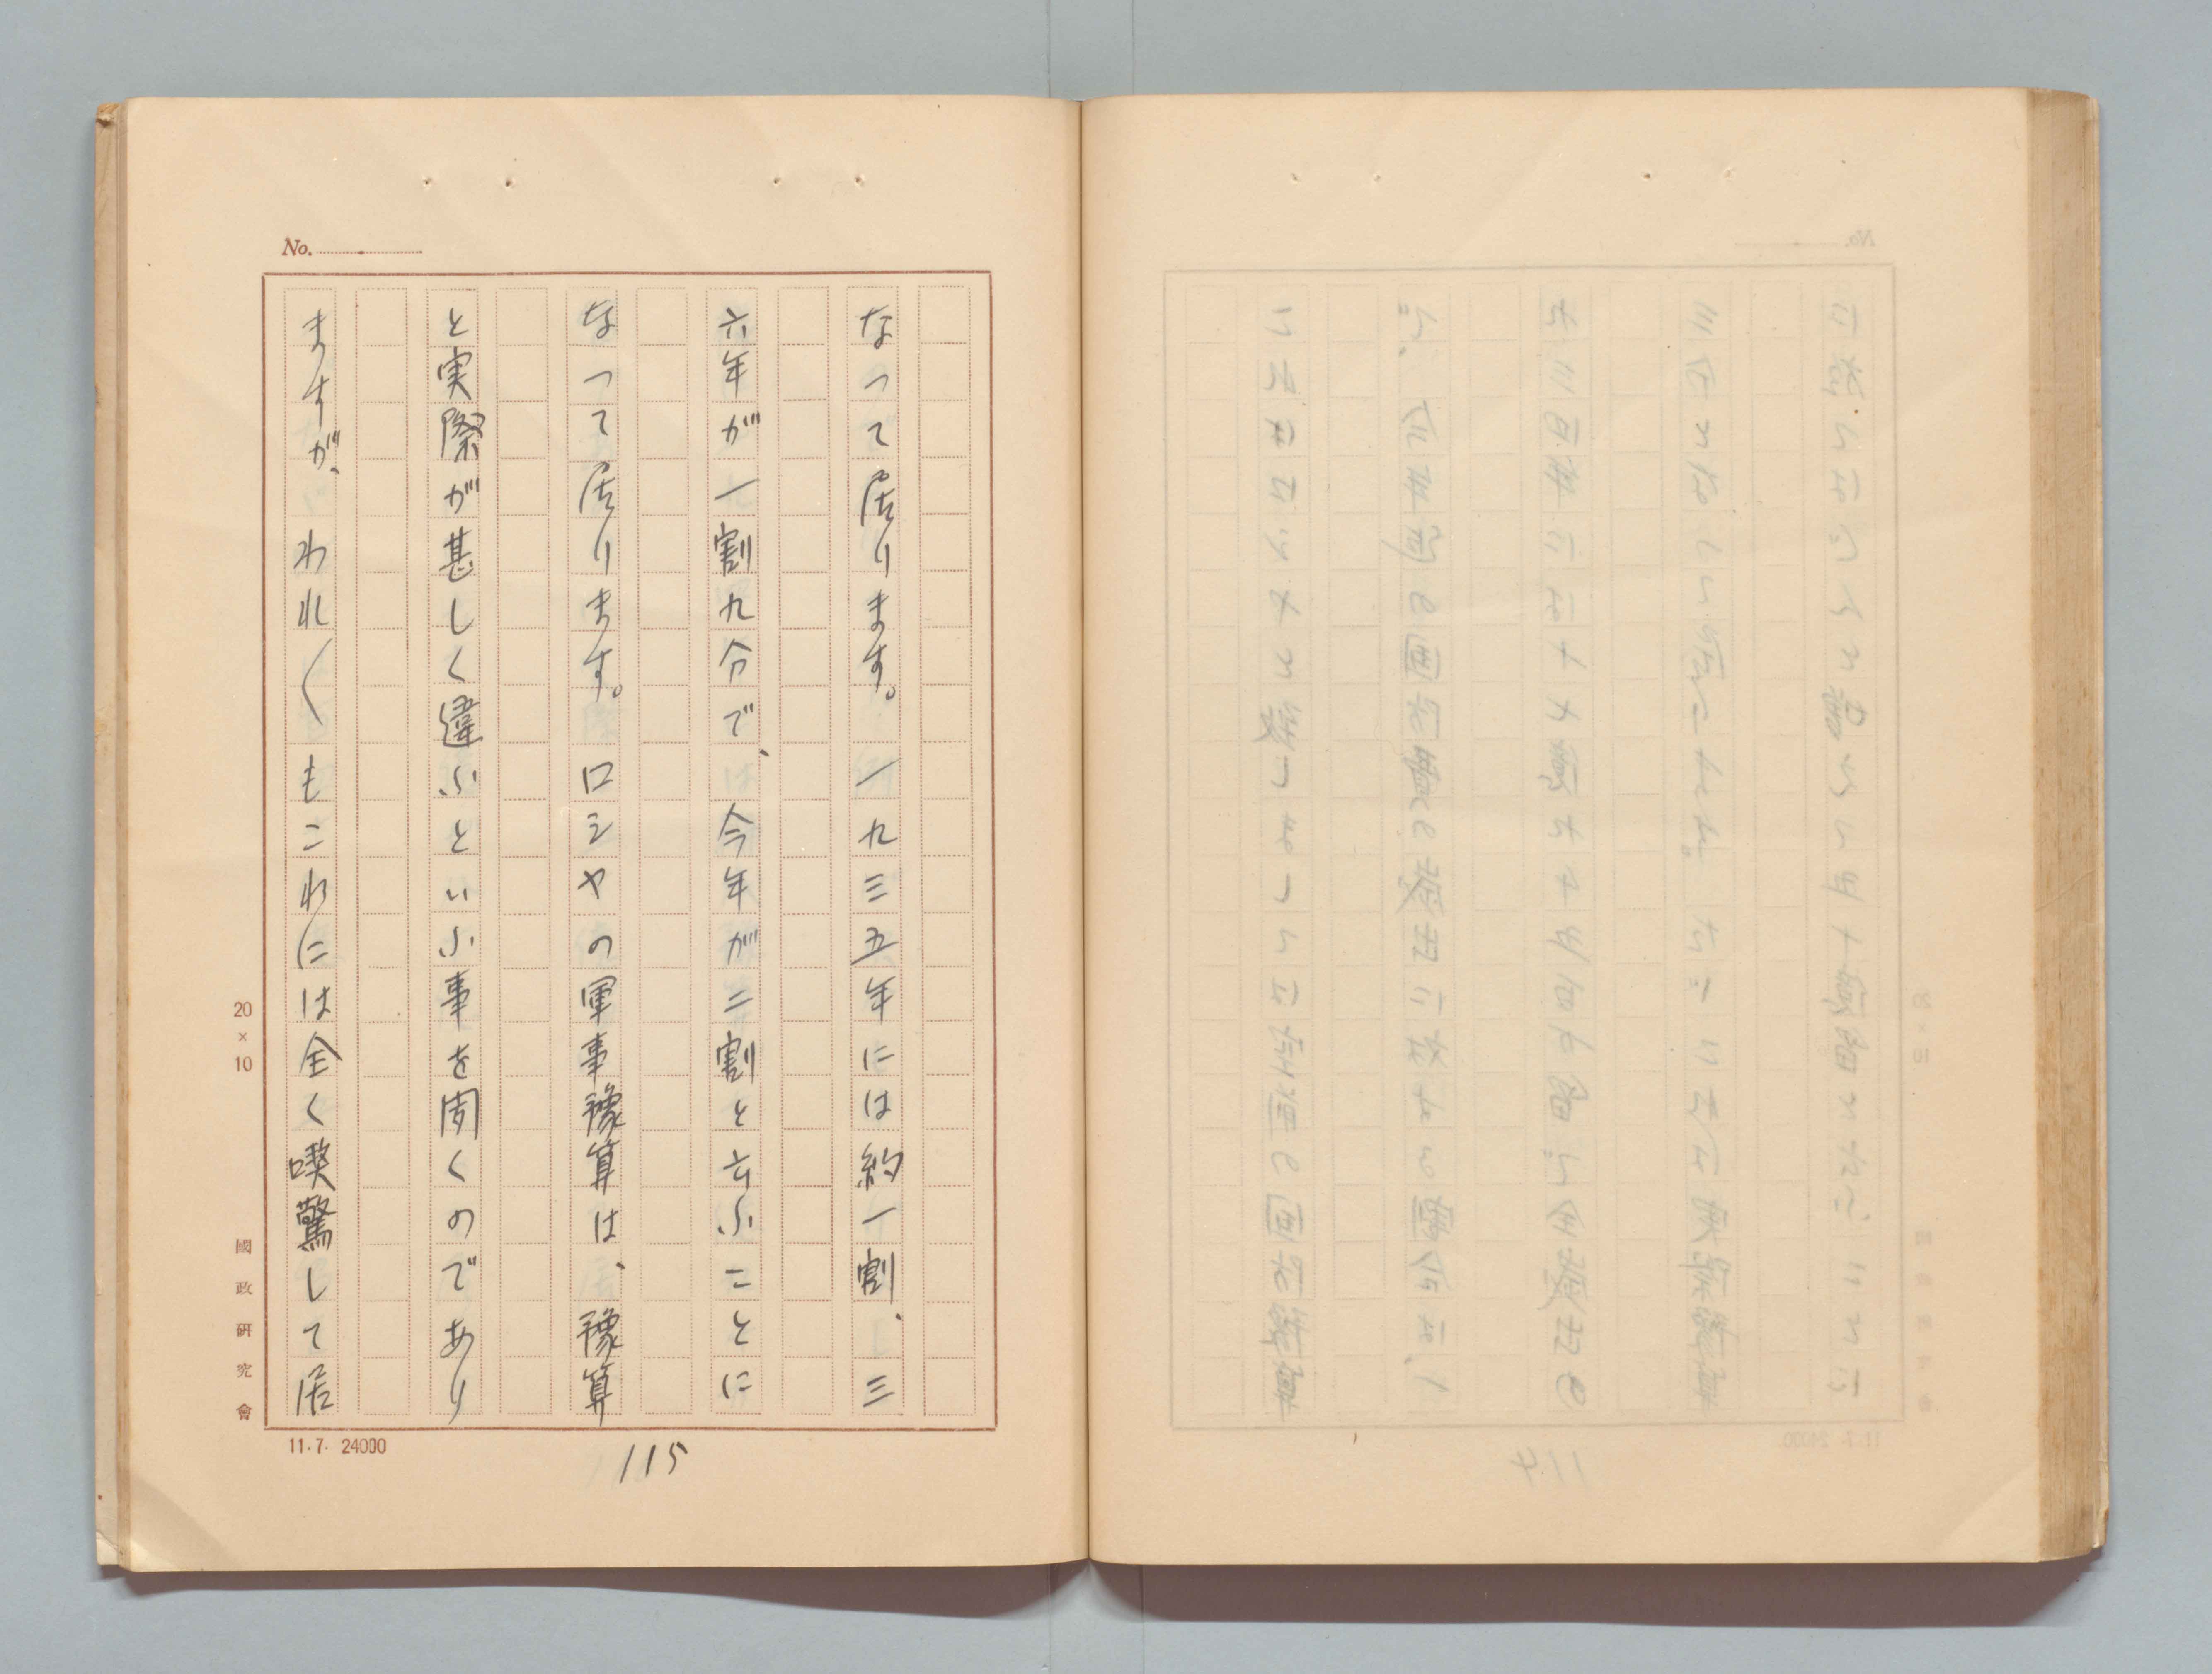 No.
なって居ります。一九三五年には約一割、三
六年が一割九分で、今年が二割と云ふことに
なって居ります。ロシヤの軍事豫算は、豫算
と実際が甚しく違ふといふ事を聞くのであり
ますが、われ〱もこれには全く喫驚して居
20×10
國政研究會
11.7. 24000
115